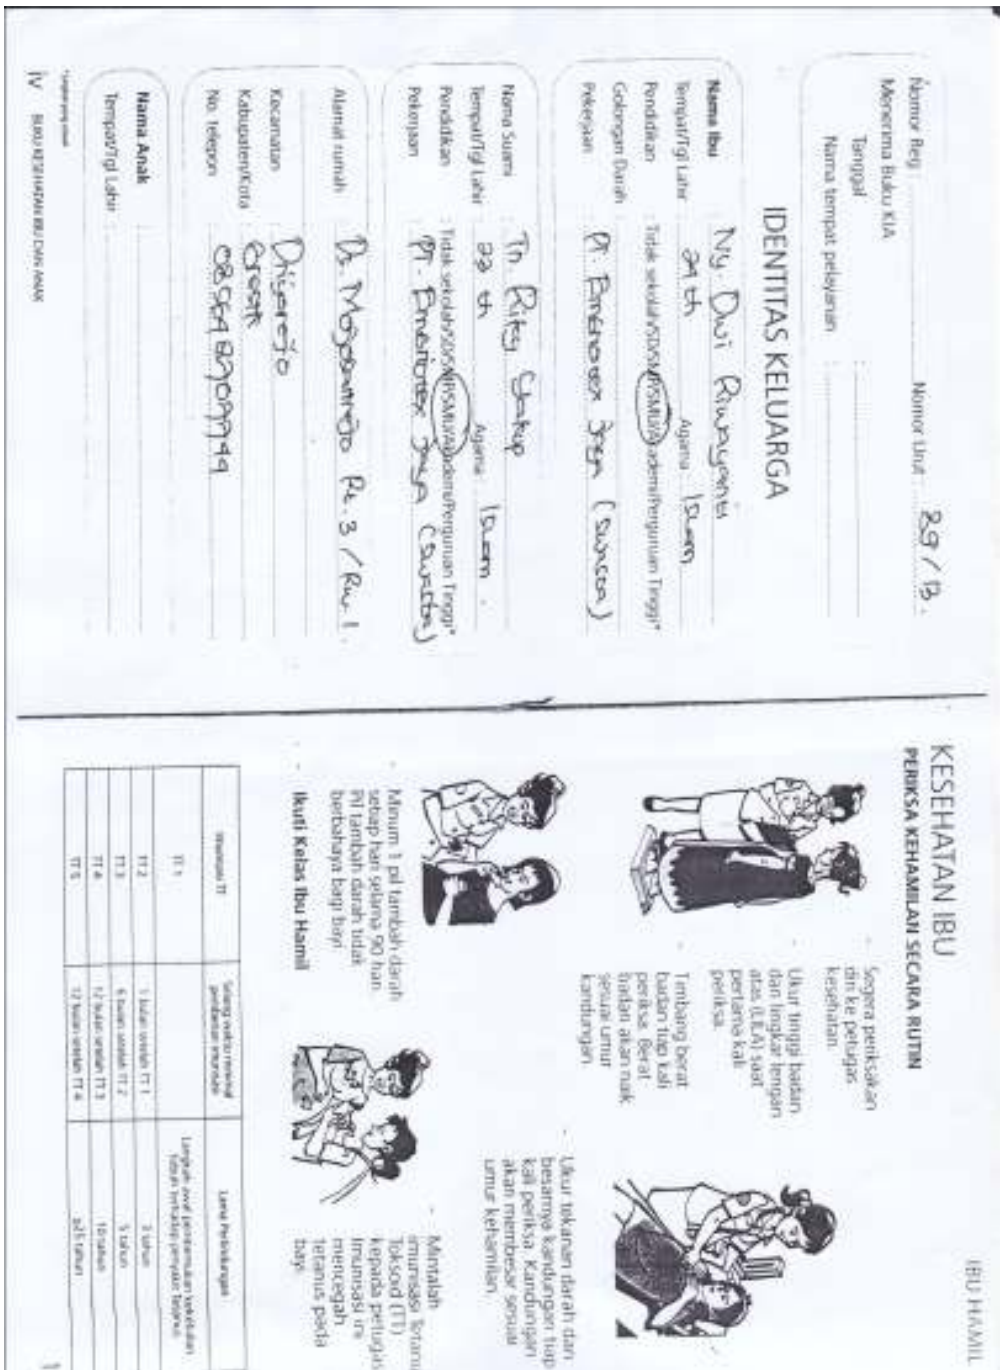 Nomor Reg :
Nomor Urut : 89 / 13 .
Menerima Buku KIA
Tanggal :
Nama tempat pelayanan :
IDENTITAS KELUARGA
Nama Ibu : Ny. Dwi Riwayanti
Tempat/Tgl Lahir : 24 th Agama : Islam
Pendidikan : Tidak sekolah/SD/SMP/SMU/Akademi/Perguruan Tinggi*
Golongan Darah :
Pekerjaan : PT.
Nama Suami : Tn.
Tempat/Tgl Lahir : 22 th Agama : Islam .
Pendidikan : Tidak sekolah/SD/SMP/SMU/Akademi/Perguruan Tinggi*
Pekerjaan : PT. (Swasta)
Alamat rumah : Ds. Rt. 3 / Rw. 1.
Kecamatan : Driyorejo
Kabupaten/Kota : Gresik
No. Telepon :
Nama Anak :
Tempat/Tgl Lahir :
iv BUKU KESEHATAN IBU DAN ANAK
IBU HAMIL
KESEHATAN IBU
PERIKSA KEHAMILAN SECARA RUTIN
- Segera periksakan
diri ke petugas
kesehatan.
- Ukur tinggi badan
dan lingkar lengan
atas (LILA) saat
pertama kali
periksa.
- Timbang berat
badan tiap kali
periksa. Berat
badan akan naik
sesuai umur
kandungan
- Ukur tekanan darah dan
besarnya kandungan tiap
kali periksa. Kandungan
akan membesar sesuai
umur kehamilan.
- Minum 1 pil tambah darah
setiap hari selama 90 hari.
Pil tambah darah tidak
berbahaya bagi bayi
- Ikuti Kelas Ibu Hamil
- Mintalah
imunisasi Tetanus
Toksoid (TT)
kepada petugas
Imunisasi ini
mencegah
tetanus pada
bayi.
Imunisasi TT Selang waktu minimal pemberian imunisasi Lama Perlindungan
TT 1 Langkah awal pembentukan kekebalan tubuh terhadap penyakit Tetanus
TT 2 1 bulan setelah TT 1 3 tahun
TT 3 6 bulan setelah TT 2 5 tahun
TT 4 12 bulan setelah TT 3 10 tahun
TT 5 12 bulan setelah TT 4 ≥25 tahun
1